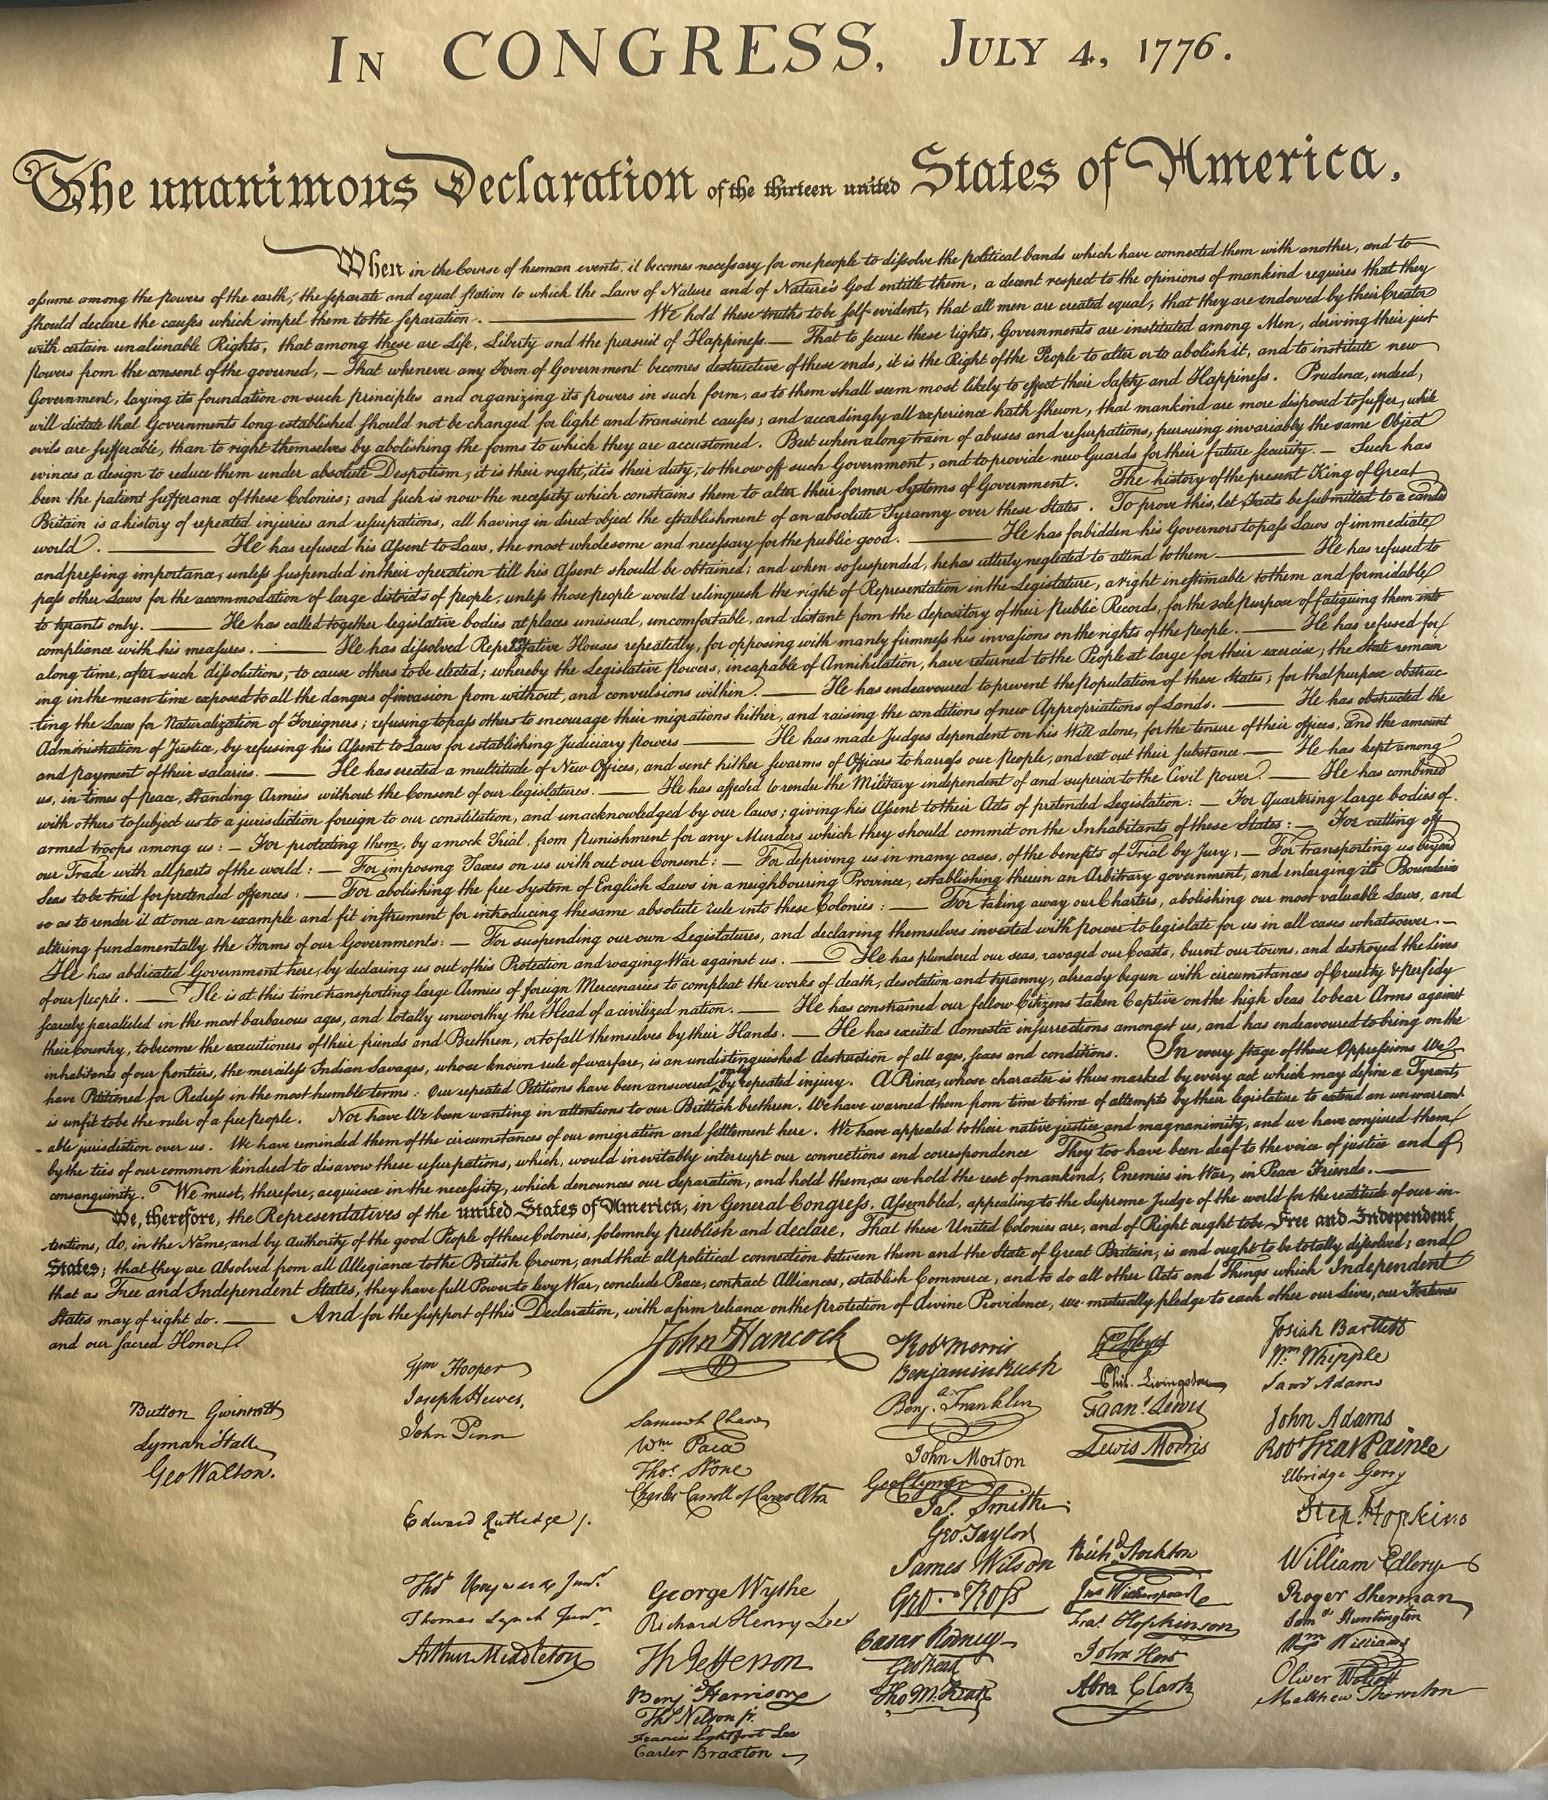 In CONGRESS, July 4, 1776.
The unanimous Declaration of the thirteen united States of America,
When in the Course of human events, it becomes necessary for one people to dissolve the political bands which have connected them with another, and to
assume among the powers of the earth, the separate and equal station to which the Laws of Nature and of Nature's God entitle them, a decent respect to the opinions of mankind requires that they
should declare the causes which impel them to the separation. ——— We hold these truths to be self-evident, that all men are created equal, that they are endowed by their Creator
with certain unalienable Rights, that among these are Life, Liberty and the pursuit of Happiness. — That to secure these rights, Governments are instituted among Men, deriving their just
powers from the consent of the governed, — That whenever any Form of Government becomes destructive of these ends, it is the Right of the People to alter or to abolish it, and to institute new
Government, laying its foundation on such principles and organizing its powers in such form, as to them shall seem most likely to effect their Safety and Happiness. Prudence, indeed,
will dictate that Governments long established should not be changed for light and transient causes; and accordingly all experience hath shewn, that mankind are more disposed to suffer, while
evils are sufferable, than to right themselves by abolishing the forms to which they are accustomed. But when a long train of abuses and usurpations, pursuing invariably the same Object
evinces a design to reduce them under absolute Despotism, it is their right, it is their duty, to throw off such Government, and to provide new Guards for their future security. — Such has
been the patient sufferance of these Colonies; and such is now the necessity which constrains them to alter their former Systems of Government. The history of the present King of Great
Britain is a history of repeated injuries and usurpations, all having in direct object the establishment of an absolute Tyranny over these States. To prove this, let Facts be submitted to a candid
world. ——— He has refused his Assent to Laws, the most wholesome and necessary for the public good. ——— He has forbidden his Governors to pass Laws of immediate
and pressing importance, unless suspended in their operation till his Assent should be obtained; and when so suspended, he has utterly neglected to attend to them. ——— He has refused to
pass other Laws for the accommodation of large districts of people, unless those people would relinquish the right of Representation in the Legislature, a right inestimable to them and formidable
to tyrants only. ——— He has called together legislative bodies at places unusual, uncomfortable, and distant from the depository of their Public Records, for the sole purpose of fatiguing them into
compliance with his measures. ——— He has dissolved Representative Houses repeatedly, for opposing with manly firmness his invasions on the rights of the people. ——— He has refused for
a long time, after such dissolutions, to cause others to be elected; whereby the Legislative powers, incapable of Annihilation, have returned to the People at large for their exercise; the State remain
ing in the mean time exposed to all the dangers of invasion from without, and convulsions within. ——— He has endeavoured to prevent the population of these States; for that purpose obstruc
-ting the Laws for Naturalization of Foreigners; refusing to pass others to encourage their migrations hither, and raising the conditions of new Appropriations of Lands. ——— He has obstructed the
Administration of Justice, by refusing his Assent to Laws for establishing Judiciary powers ——— He has made Judges dependent on his Will alone, for the tenure of their offices, and the amount
and payment of their salaries. ——— He has erected a multitude of New Offices, and sent hither swarms of Officers to harrass our People, and eat out their substance. —— He has kept among
us, in times of peace, Standing Armies without the Consent of our legislatures. ——— He has affected to render the Military independent of and superior to the Civil power. ——— He has combined
with others to subject us to a jurisdiction foreign to our constitution, and unacknowledged by our laws; giving his Assent to their Acts of pretended Legislation: — For Quartering large bodies of
armed troops among us: — For protecting them, by a mock Trial, from Punishment for any Murders which they should commit on the Inhabitants of these States: — For cutting off
our Trade with all parts of the world: — For imposing Taxes on us without our Consent: — For depriving us in many cases, of the benefits of Trial by Jury: — For transporting us beyond
Seas to be tried for pretended offences: — For abolishing the free System of English Laws in a neighbouring Province, establishing therein an Arbitrary government, and enlarging its Boundaries
so as to render it at once an example and fit instrument for introducing the same absolute rule into these Colonies: —— For taking away our Charters, abolishing our most valuable Laws, and
altering fundamentally the Forms of our Governments: — For suspending our own Legislatures, and declaring themselves invested with power to legislate for us in all cases whatsoever. —
He has abdicated Government here, by declaring us out of his Protection and waging War against us. —— He has plundered our seas, ravaged our Coasts, burnt our towns, and destroyed the lives
of our people. —— He is at this time transporting large Armies of foreign Mercenaries to compleat the works of death, desolation and tyranny, already begun with circumstances of Cruelty & perfidy
scarcely paralleled in the most barbarous ages, and totally unworthy the Head of a civilized nation. —— He has constrained our fellow Citizens taken Captive on the high Seas to bear Arms against
their Country, to become the executioners of their friends and Brethren, or to fall themselves by their Hands. —— He has excited domestic insurrections amongst us, and has endeavoured to bring on the
inhabitants of our frontiers, the merciless Indian Savages, whose known rule of warfare, is an undistinguished destruction of all ages, sexes and conditions. In every stage of these Oppressions We
have Petitioned for Redress in the most humble terms: Our repeated Petitions have been answered only by repeated injury. A Prince, whose character is thus marked by every act which may define a Tyrant,
is unfit to be the ruler of a free people. Nor have We been wanting in attentions to our Brittish brethren. We have warned them from time to time of attempts by their legislature to extend an unwarrant
-able jurisdiction over us. We have reminded them of the circumstances of our emigration and settlement here. We have appealed to their native justice and magnanimity, and we have conjured them
by the ties of our common kindred to disavow these usurpations, which, would inevitably interrupt our connections and correspondence They too have been deaf to the voice of justice and of
consanguinity. We must, therefore, acquiesce in the necessity, which denounces our Separation, and hold them, as we hold the rest of mankind, Enemies in War, in Peace Friends. ——
We, therefore, the Representatives of the united States of America, in General Congress, Assembled, appealing to the Supreme Judge of the world for the rectitude of our in-
tentions, do, in the Name, and by Authority of the good People of these Colonies, solemnly publish and declare, That these United Colonies are, and of Right ought to be Free and Independent
States; that they are Absolved from all Allegiance to the British Crown, and that all political connection between them and the State of Great Britain, is and ought to be totally dissolved; and
that as Free and Independent States, they have full Power to levy War, conclude Peace, contract Alliances, establish Commerce, and to do all other Acts and Things which Independent
States may of right do. —— And for the support of this Declaration, with a firm reliance on the protection of divine Providence, we mutually pledge to each other our Lives, our Fortunes
and our sacred Honor.
Button Gwinnett
Lyman Hall
Geo Walton.
Wm Hooper
Joseph Hewes,
John Penn
Edward Rutledge /.
Thos Heyward Junr.
Thomas Lynch Junr.
Arthur Middleton
John Hancock
Samuel Chase
Wm Paca
Thos Stone
Charles Carroll of Carrollton
George Wythe
Richard Henry Lee
Th Jefferson
Benj Harrison
Thos Nelson jr.
Francis Lightfoot Lee
Carter Braxton
Robt Morris
Benjamin Rush
Benja. Franklin
John Morton
Geo Clymer
Jas. Smith
Geo. Taylor
James Wilson
Geo. Ross
Caesar Rodney
Geo Read
Tho M:Kean
Wm Floyd
Phil. Livingston
Frans. Lewis
Lewis Morris
Richd. Stockton
Jno Witherspoon
Fras. Hopkinson
John Hart
Abra Clark
Josiah Bartlett
Wm. Whipple
Saml Adams
John Adams
Robt Treat Paine
Elbridge Gerry
Step. Hopkins
William Ellery
Roger Sherman
Saml Huntington
Wm Williams
Oliver Wolcott
Matthew Thornton